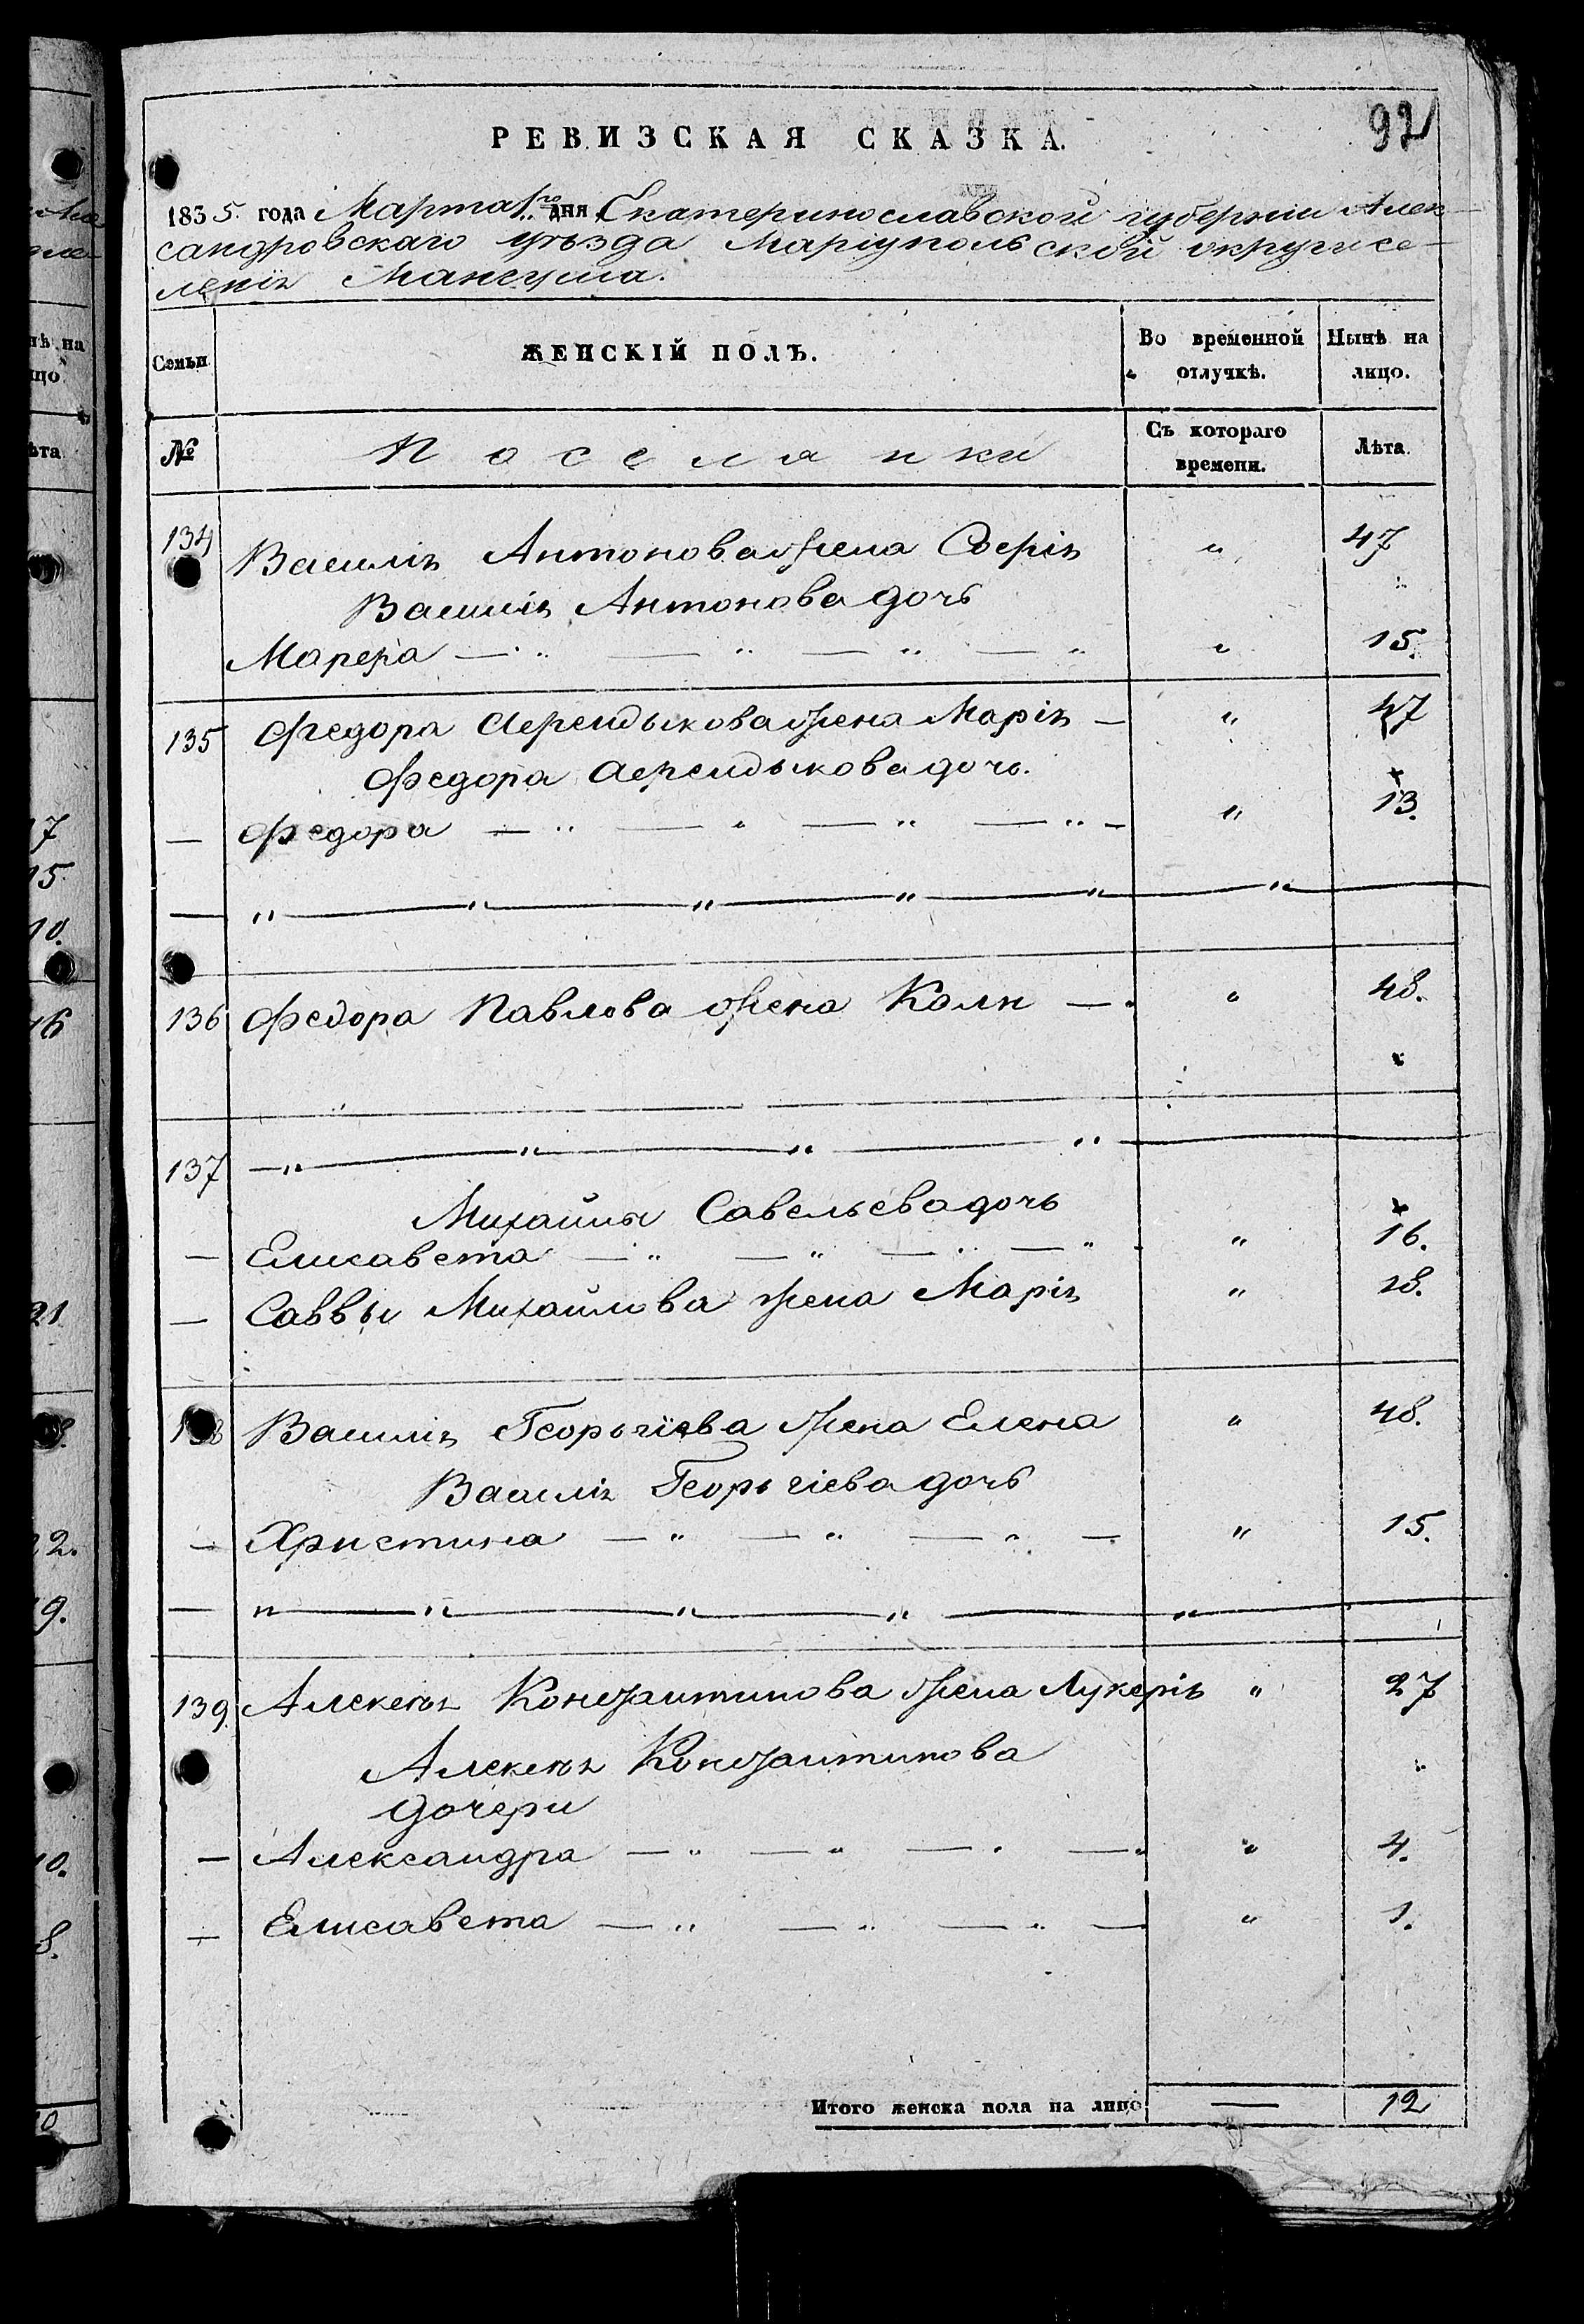 92
РЕВИЗСКАЯ СКАЗКА.
1835. года Марта 1го дня, Екатеринославской губерніи Алек-
сандровскаго уѣзда Маріупольской округи се-
ленія Мангуша.
Семьи
ЖЕНСКІЙ ПОЛЪ.
Во временной отлучкѣ.
Нынѣ на лицо.
№
Поселянки
Съ котораго времени.
Лѣта.
134 Василія Антонова жена Софія " 47
Василія Антонова дочь
Марфа — " — " — " — " " 15.
135 Федора Аерендыкова жена Марія — " 47
Федора Аерендыкова дочь.
— Федора — " — " — " — " — " 13.
— " — " — " — " — " — "
136 Федора Павлова жена Кали — " 48.
137 — " — " — " — "
Михайлы Савельева дочь
— Елисавета — " — " — " — " " 16.
— Саввы Михайлова жена Марія " 28.
138 Василія Георьгіева жена Елена " 48.
Василія Георьгіева дочь
— Христина — " — " — " — " 15.
— " — " — " — " — "
139. Алексѣя Констаитинова жена Лукерія " 27
Алексѣя Констаитинова
дочери
— Александра — " — " — " — " 4.
— Елисавета — " — " — " — " 1.
Итого женска пола на лицо — 12